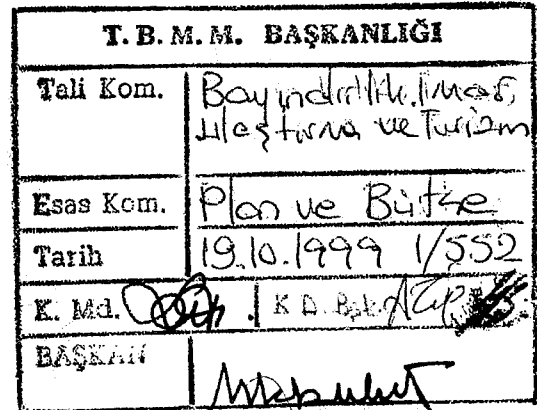 T. B. M. M. BAŞKANLIĞI
Tali Kom. Bayındırlık, İmar,
Ulaştırma ve Turizm
Esas Kom. Plan ve Bütçe
Tarih 19.10.1999 1/552
K. Md. K. D. Bşk.
BAŞKAN